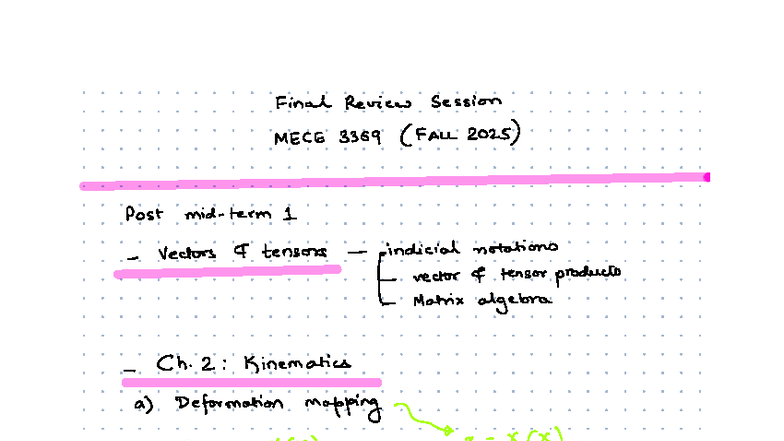 Final Review Session
MECE 3369 (FALL 2025)
Post mid-term 1
- Vectors & tensors — indicial notations
vector & tensor products
Matrix algebra
- Ch. 2: Kinematics
a) Deformation mapping